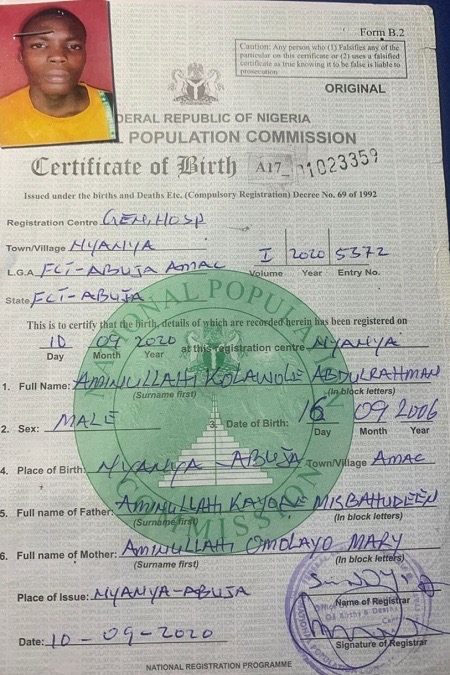 Form B.2
Caution: Any person who (1) Falsifies any of the
particular on this certificate or (2) uses a falsified
certificate as true knowing it to be false is liable to
prosecution
ORIGINAL
DERAL REPUBLIC OF NIGERIA
POPULATION COMMISSION
Certificate of Birth A17_ 01023359
Issued under the births and Deaths Etc. (Compulsory Registration) Decree No. 69 of 1992
Registration Centre GEN, HOSP
Town/Village NYANYA
I 2020 5372
L.G.A FCT-ABUJA AMAC
Volume Year Entry No.
State FCT-ABUJA
This is to certify that the birth, details of which are recorded herein has been registered on
10 09 2020 at this registration centre NYANYA
Day Month Year
1. Full Name: AMINULLAHI KOLAWOLE ABDULRAHMAN
(Surname first) (In block letters)
2. Sex: MALE 3. Date of Birth: 16 09 2006
Day Month Year
4. Place of Birth: NYANYA - ABUJA Town/Village AMAC
5. Full name of Father: AMINULLAHI KAYODE MISBAHUDEEN
(Surname first) (In block letters)
6. Full name of Mother: AMINULLAHI OMOLAYO MARY
(Surname first) (In block letters)
Place of Issue: NYANYA-ABUJA
Name of Registrar
Date: 10-09-2020
Signature of Registrar
NATIONAL REGISTRATION PROGRAMME
NATIONAL POPULATION
COMMISSION